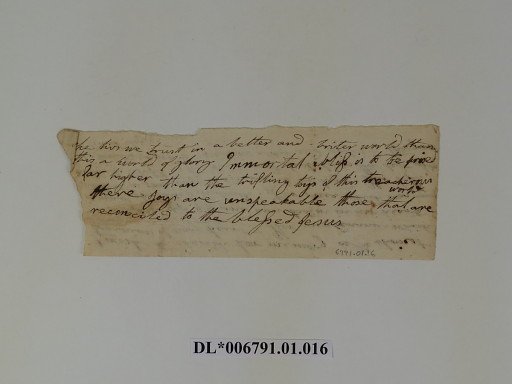 he lives we trust in a better and briter world than
this a world of glory Immortal bliss is to be prized
far higher than the trifling toys of this treacherous
world
there joys are unspeakable those that are
reconciled to the blessed Jesus
6791.01.16
DL*006791.01.016